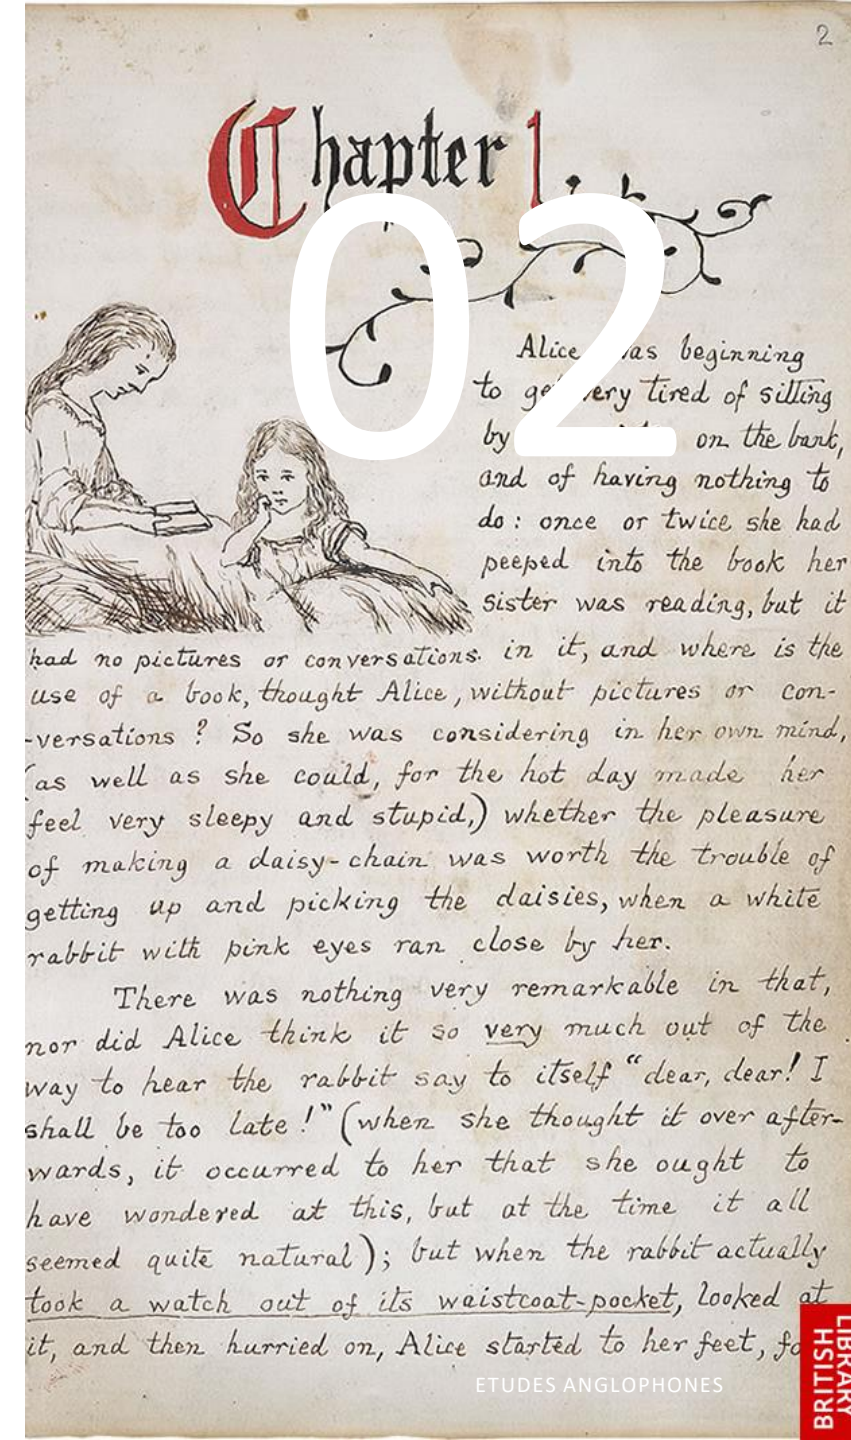 2
Chapter 1.
02
Alice was beginning
to get very tired of sitting
by on the bank,
and of having nothing to
do: once or twice she had
peeped into the book her
sister was reading, but it
had no pictures or conversations in it, and where is the
use of a book, thought Alice, without pictures or con-
-versations? So she was considering in her own mind,
(as well as she could, for the hot day made her
feel very sleepy and stupid,) whether the pleasure
of making a daisy-chain was worth the trouble of
getting up and picking the daisies, when a white
rabbit with pink eyes ran close by her.
There was nothing very remarkable in that,
nor did Alice think it so very much out of the
way to hear the rabbit say to itself "dear, dear! I
shall be too late!" (when she thought it over after-
wards, it occurred to her that she ought to
have wondered at this, but at the time it all
seemed quite natural); but when the rabbit actually
took a watch out of its waistcoat-pocket, looked at
it, and then hurried on, Alice started to her feet, fo
ETUDES ANGLOPHONES
BRITISH
LIBRARY